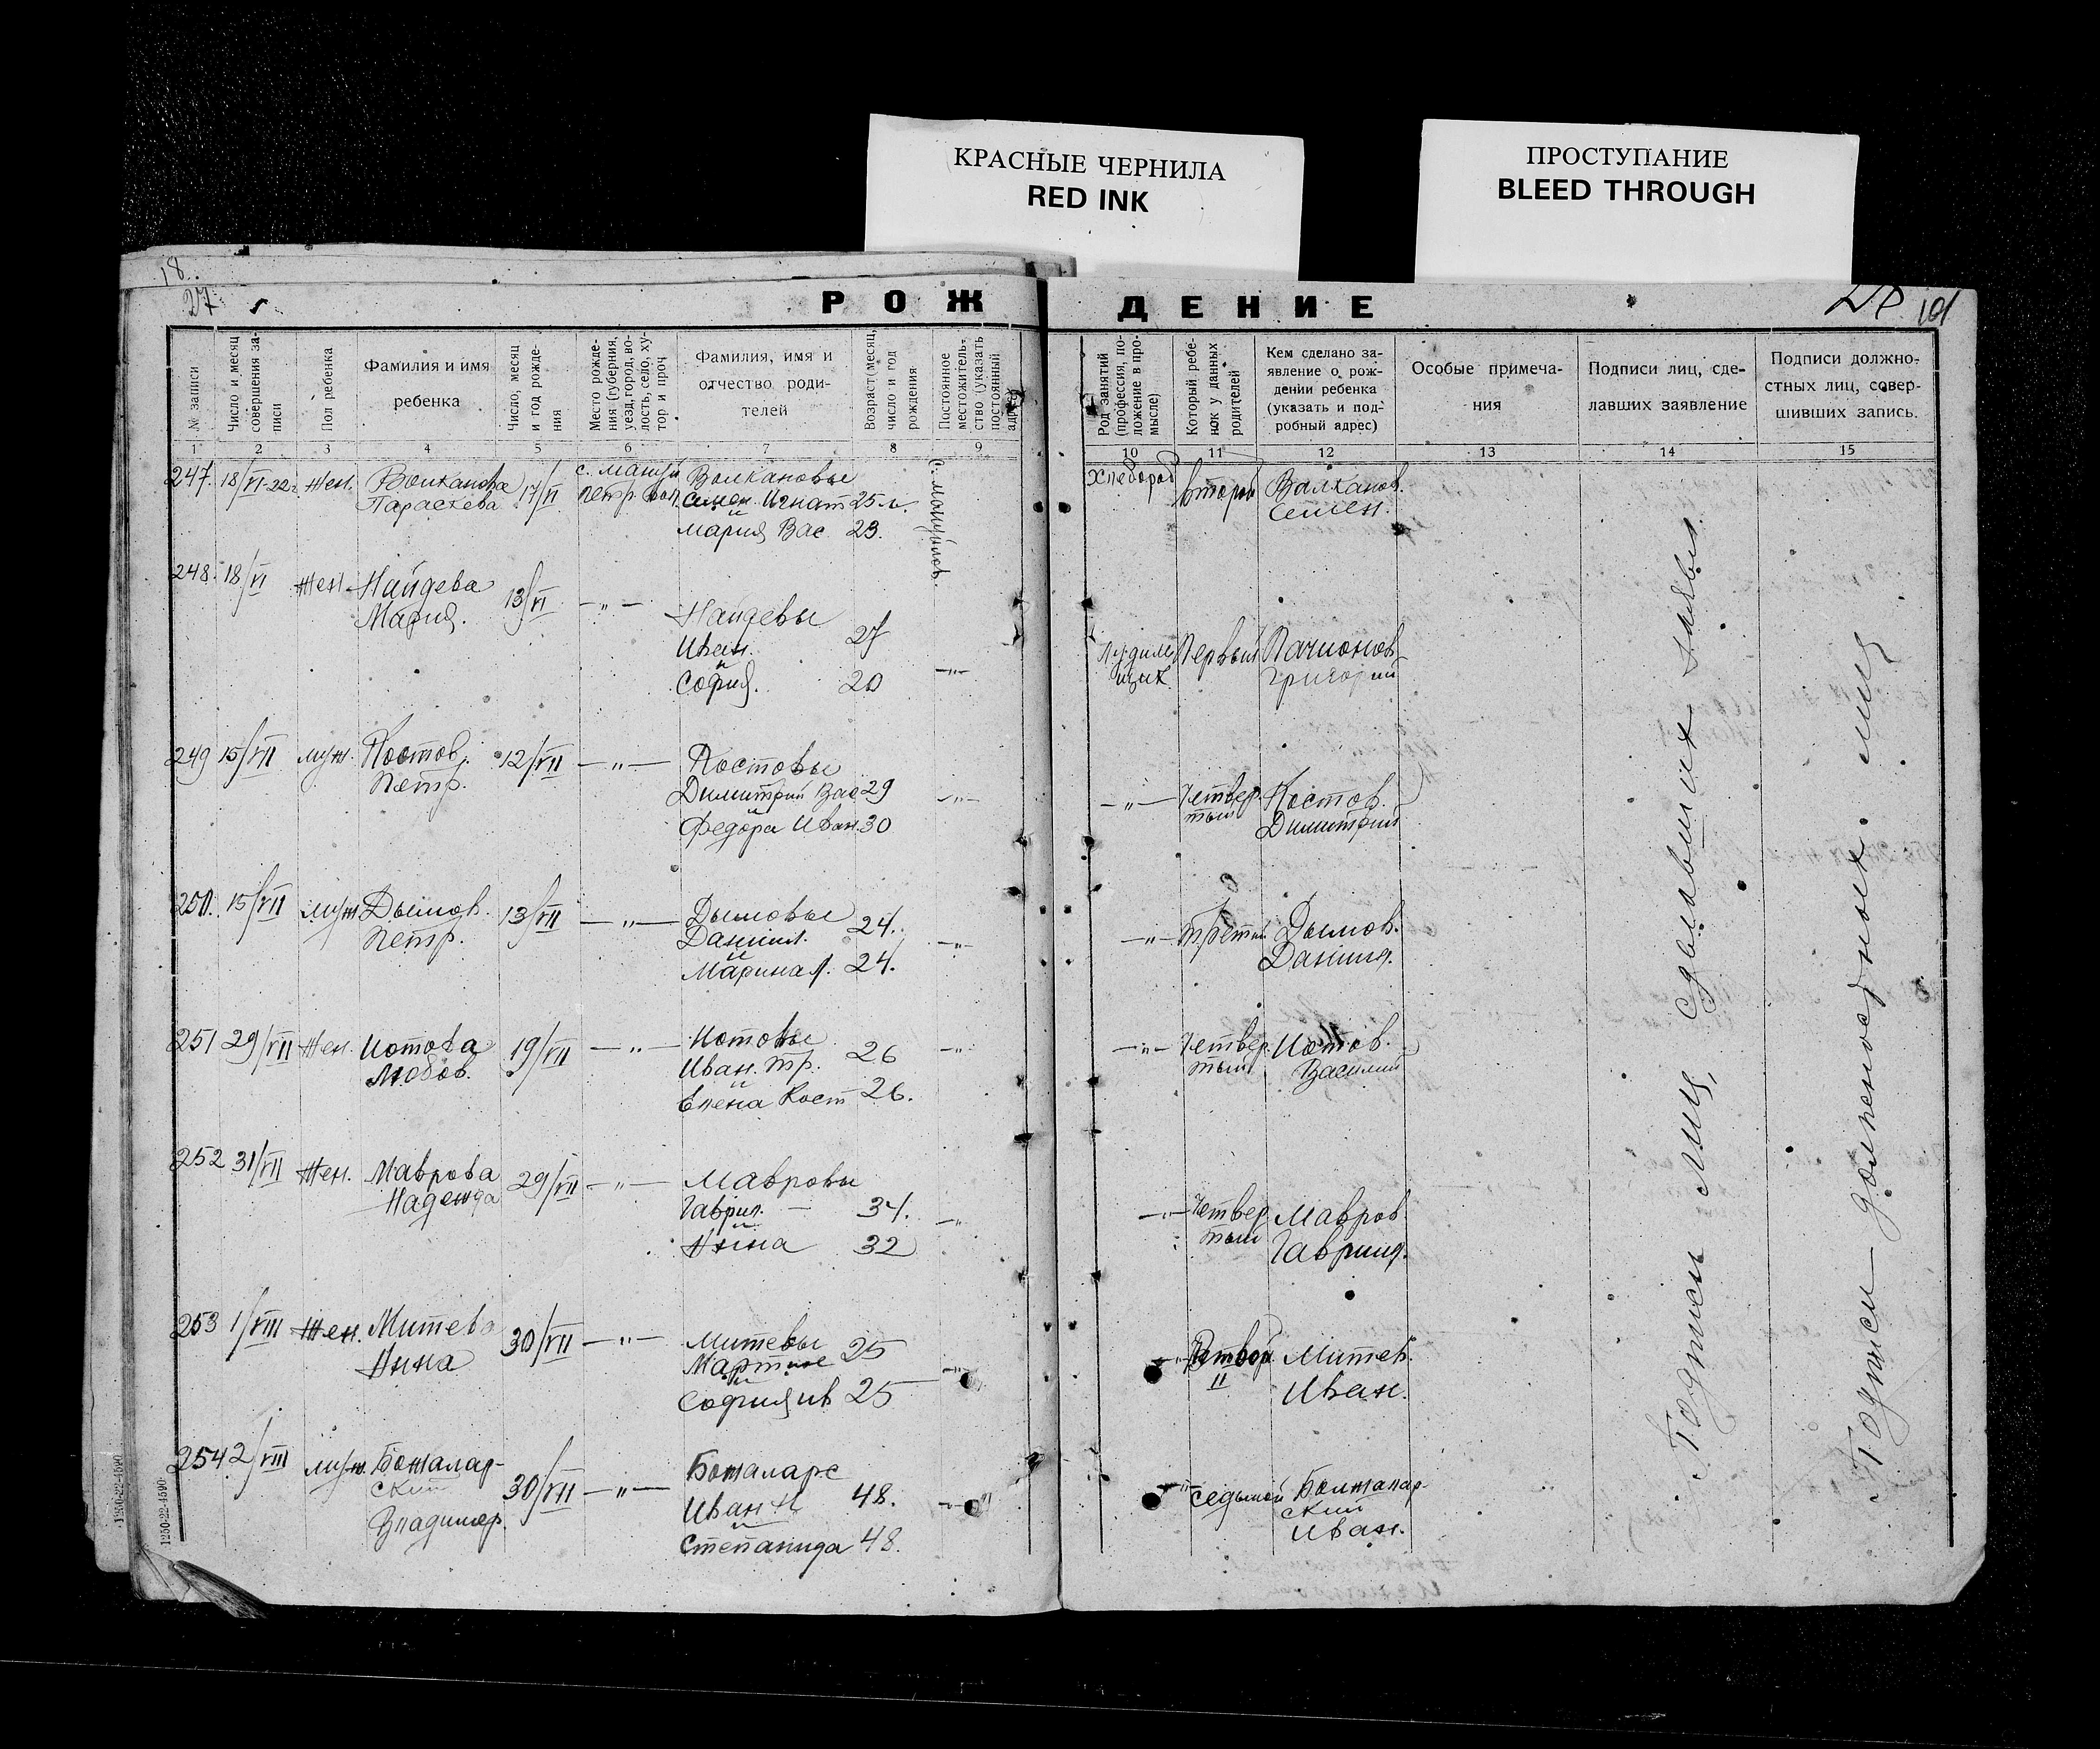 КРАСНЫЕ ЧЕРНИЛА
RED INK
ПРОСТУПАНИЕ
BLEED THROUGH
18
27
101
РОЖ
ДЕНИЕ
№ записи
Число и месяц совершения записи
Пол ребенка
Фамилия и имя
ребенка
Число, месяц и год рождения
Место рождения (губерния, уезд, город, волость, село, хутор и проч
Фамилия, имя и
отчество роди-
телей
Возраст (месяц, число и год рождения
Постоянное местожительство (указать постоянный адрес)
Род занятий (профессия, положение в промысле)
Который ребенок у данных родителей
Кем сделано за-
явление о рож-
дении ребенка
(указать и под-
робный адрес)
Особые примеча-
ния
Подписи лиц, сде-
лавших заявление
Подписи должно-
стных лиц, совер-
шивших запись.
1 2 3 4 5 6 7 8 9 10 11 12 13 14 15
247. 18/VI-22г Жен. Волканова 17/VI Волкановы
Параскева Семен Игнат 25 л.
и
Мария Вас 23.
Хлебороб второй Волканов.
Семен.
248. 18/VI Жен. Найдева 13/VI —"— Найдевы
Мария. Иван. 27
и
София. 20 —"—
Первый
Григорий
249 15/VII муж. Костов 12/VII —"— Костовы
Петр. Димитрий Вас 29 —"—
и
Федора Иван. 30
—"— Четвер Костов.
тый Димитрий
250. 15/VII муж Дымов. 13/VII —"— Дымовы
Петр. Даниил. 24. —"—
и
Марина 24.
—"— третий Дымов.
Даниил.
251 29/VII Жен. Иотова 19/VII —"— Иотовы
Любов. Иван. Тр. 26 —"—
и
Елена Конст 26.
—"— Четвер Иотов.
тый Василий
252 31/VII Жен. Маврова 29/VII —"— Мавровы
Надежда Гаврил. — 34. —"—
и
Анна 32
—"— Четвер Мавров
тый Гавриил.
253 1/VIII Жен. Митева 30/VII —"— Митевы
Анна 25 —"—
и
София Ив 25
—"— Митев.
II Иван.
254 2/VIII муж. Божалар- 30/VII —"— Божаларс
ский Иван 48. —"—
Владимер. и
Степанида 48.
—"— седьмой
ский
Иван.
Подписи лиц, сделавших заявл.
Подписи должностных лиц
1250-22-4590
1250-22-4590